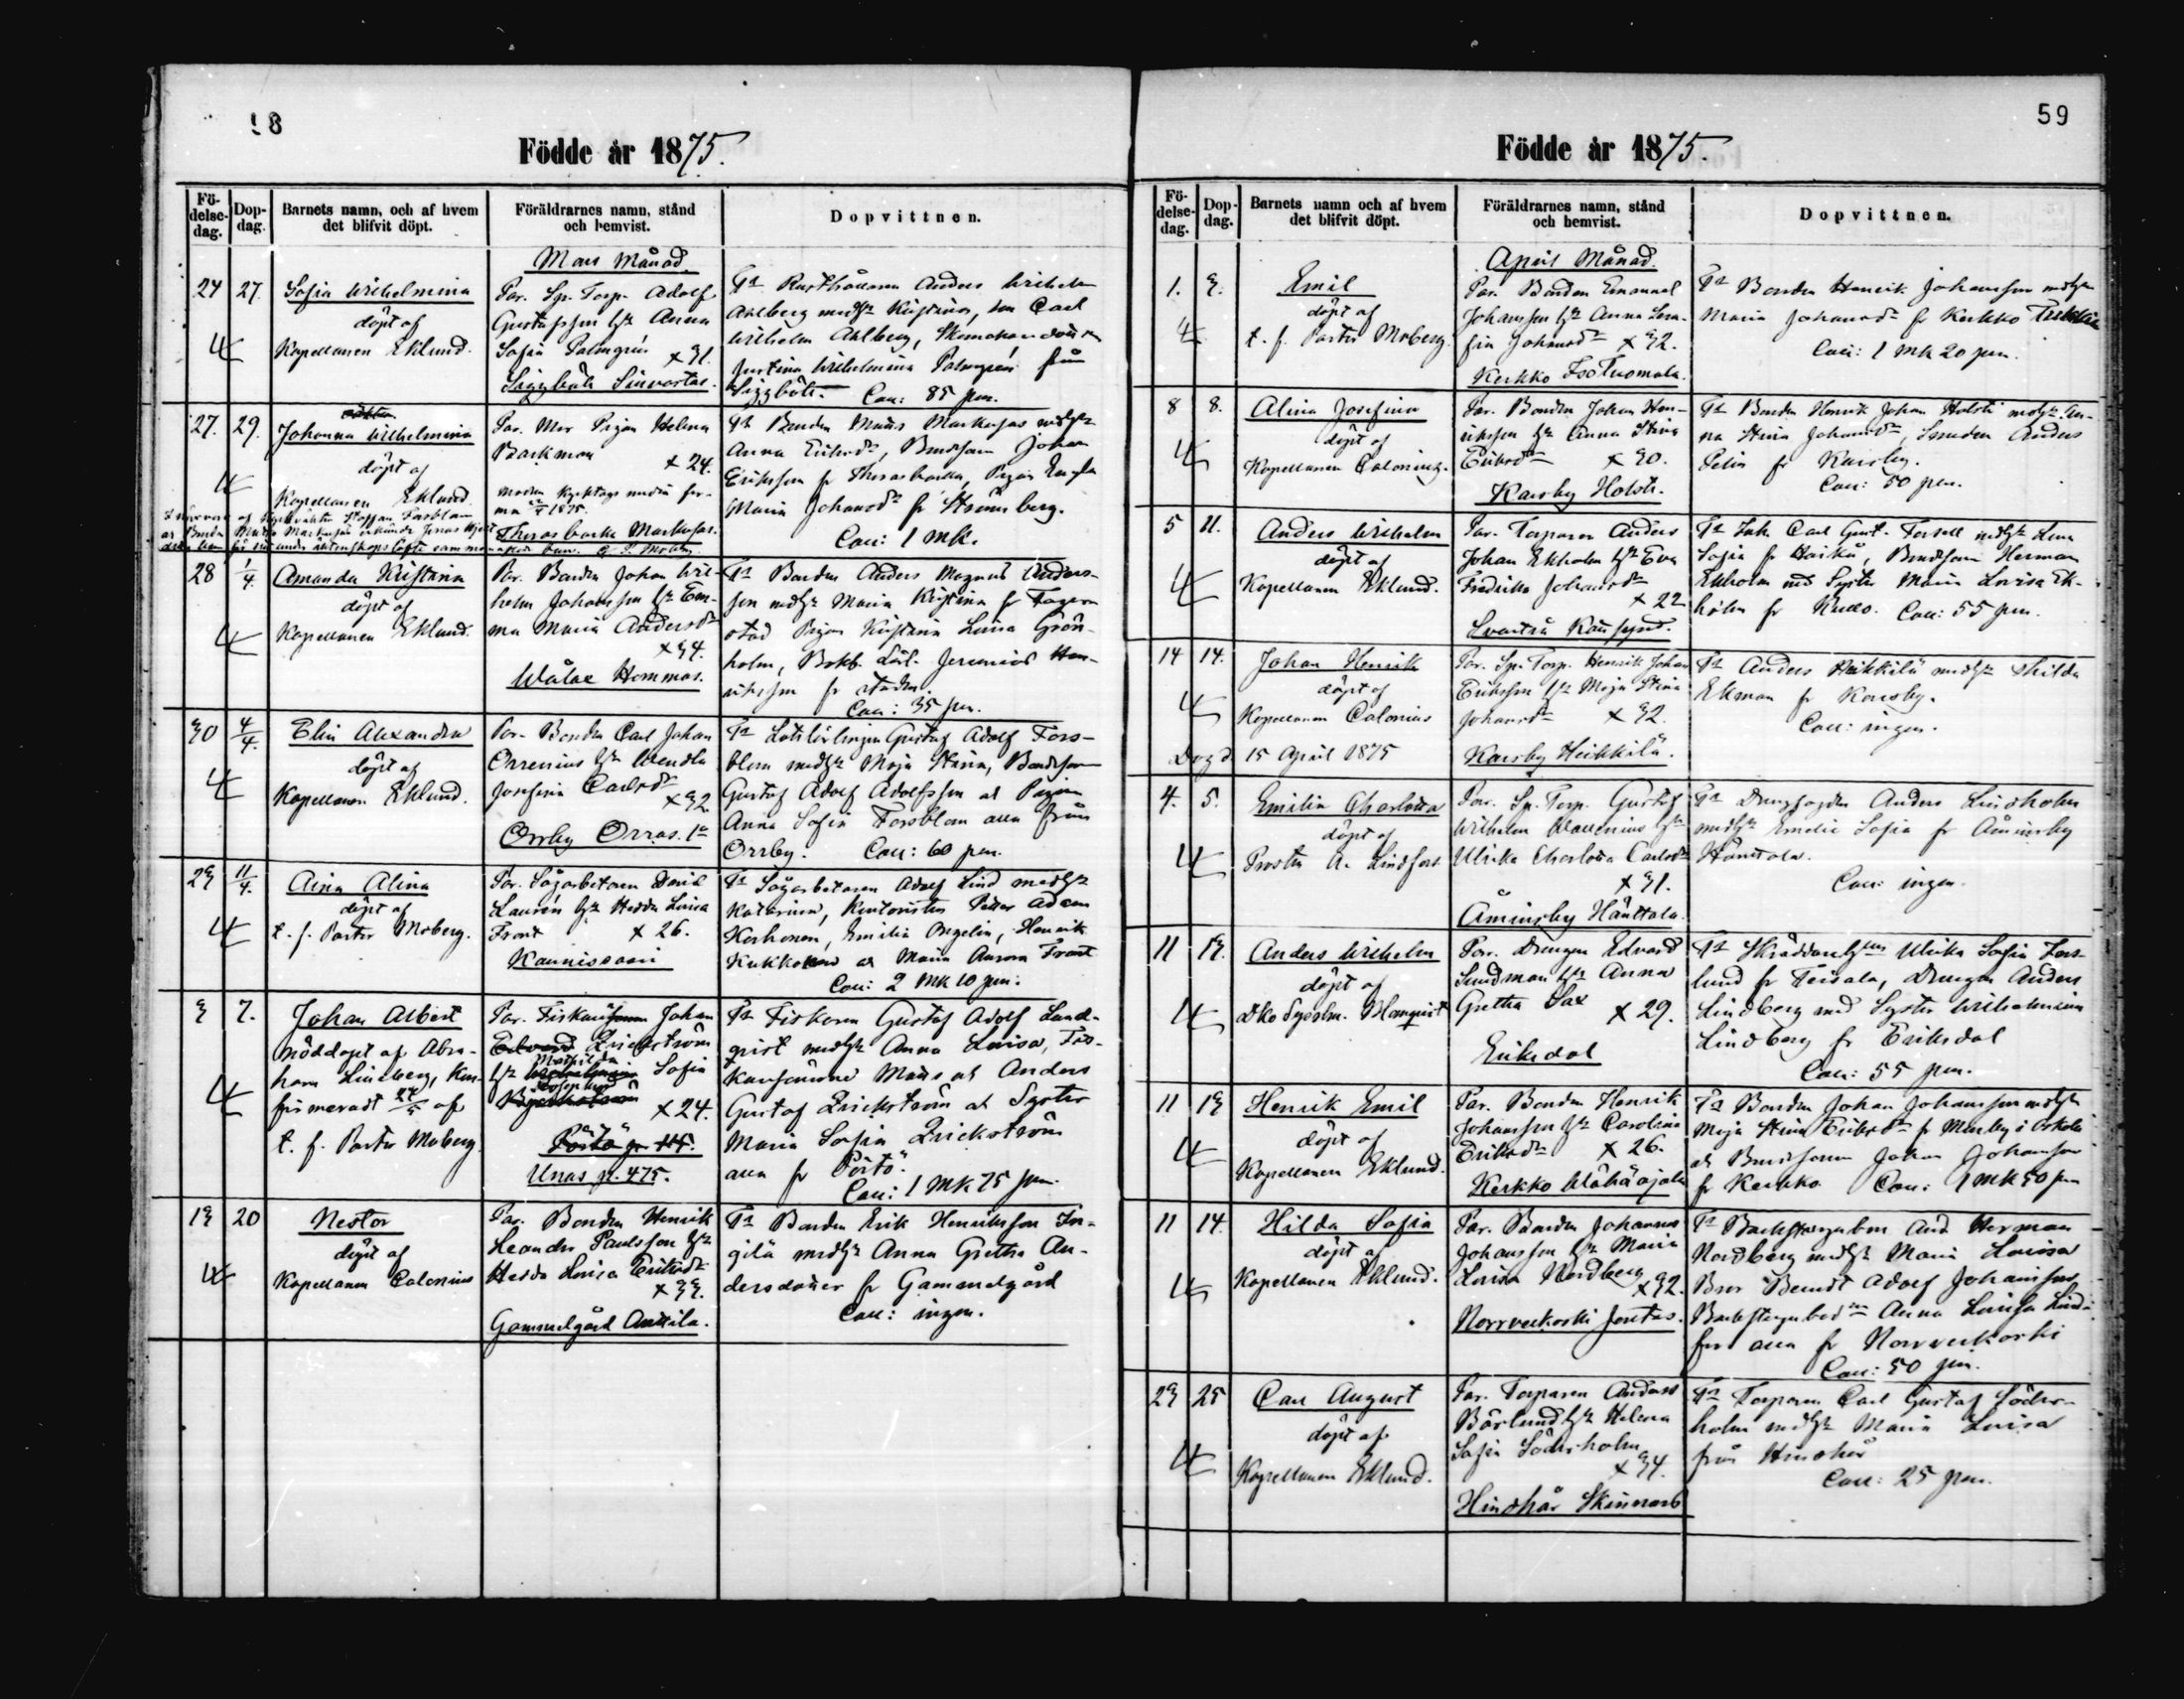 58
Födde år 1875.
Fö-
delse-
dag.
Dop-
dag.
Barnets namn, och af hvem
det blifvit döpt.
Föräldrarnes namn, stånd
och hemvist.
Dopvittnen.
Mars Månad.
24 27. Sofia Wilhelmina
döpt af
Kapellanen Eklund.
Par. Sp. Torp. Adolf
Gustafsson h. Anna
Sofia Palmgrén
x 31.
Siggböle Sinvastas.
Anders Wilhelm
Ahlberg Kristina, Carl
Wilhelm Ahlberg,
Justina Wilhelmina Palmgrén från
Siggböle. Coll: 85 pen.
27. 29. Johanna Wilhelmina
döpt af
Kapellanen Eklund.
Par. Mor Pigan Helena
Backman
x 24.
1875.
Therasbacka Markusas.
Bonden Matts Markusas
Anna Eriksdr, Johan
Eriksson fr Therasbacka, Pigan
Maria Johansdr fr Strömsberg.
Coll: 1 mk.
28 1/4. Amanda Kristina
döpt af
Kapellanen Eklund.
Par. Bonden Johan Wil-
helm Johansson h. Em-
ma Maria Andersdr
x 34.
Wålax Hommas.
Bonden Anders Magnus Anders-
son Maria Kristina fr
stad Pigan Kristina Lovisa Grön-
holm, Jeremias Hen-
riksson fr staden.
Coll: 35 pen.
30 4/4. Elin Alexandra
döpt af
Kapellanen Eklund.
Par. Bonden Carl Johan
Orrenius h. Wendla
Josefina Carlsdr
x 32
Orrby Orras. 1o
Gustaf Adolf Fors-
blom Maja Stina, Bondeson
Gustaf Adolf Adolfsson o Pigan
Anna Sofia Forsblom alla från
Orrby. Coll: 60 pen.
23 11/4. Aina Alina
döpt af
t. f. Pastor Moberg.
Par. Sågarbetaren David
Laurén h. Hedda Lovisa
Frant x 26.
Kaunissaari
Sågarbetaren Adolf Lind
Katarina, Kontoristen Petter Adam
Korhonen, Emilia Angelin, Henrik
Kukkonen o Maria Aurora Frant
Coll: 2 mk 10 pen.
3 7. Johan Albert
nöddöpt af Abra-
ham Lindberg, Kon-
firmeradt af
t. f. Pastor Moberg.
Par. Fiskaren Johan
Edvard Erickström
h. Mathilda Sofia
x 24.
Pörtö
Unas p. 475.
Fiskaren Gustaf Adolf Lund-
qvist Anna Lovisa, Fis-
Matts o Anders
Gustaf Erickström o Syster
Maria Sofia Erickström
alla fr Pörtö.
Coll: 1 mk 75 pen.
13 20 Nestor
döpt af
Kapellanen Calonius
Par. Bonden Henrik
Leander Paulsson h.
Hedda Lovisa Eriksdr
x 33.
Gammelgård Anttila.
Bonden Erik Henriksson In-
gilä Anna Gretha An-
dersdotter fr Gammelgård
Coll: ingen.
59
Födde år 1875.
Fö-
delse-
dag.
Dop-
dag.
Barnets namn och af hvem
det blifvit döpt.
Föräldrarnes namn, stånd
och hemvist.
Dopvittnen.
April Månad.
1. 3. Emil
döpt af
t. f. Pastor Moberg.
Par. Bonden Emanuel
Johansson h. Anna Sera-
fia Johansdr x 32.
Kerkko IsoTuomala.
Bonden Henrik Johansson
Maria Johansdr fr Kerkko
Coll: 1 mk 20 pen.
8 8. Alina Josefina
döpt af
Kapellanen Calonius.
Par. Bonden Johan Hen-
riksson h. Anna Stina
Eriksdr x 30.
Karsby Holsti.
Bonden Henrik Johan Holsti An-
na Stina Johansdr, Smeden Anders
Pelin fr Karsby.
Coll: 50 pen.
5 11. Anders Wilhelm
döpt af
Kapellanen Eklund.
Par. Torparen Anders
Johan Ekholm h. Eva
Fredrika Johansdr
x 22
Svartså
Inh. Carl Gust. Forsell Lena
Sofia fr Haikå, Bondeson Herman
Ekholm med Syster Maria Lovisa Ek-
holm fr Kullo. Coll: 55 pen.
14 14. Johan Henrik
döpt af
Kapellanen Calonius
Dog d 15 April 1875
Par. Sp. Torp. Henrik Johan
Eriksson h. Maja Stina
Johansdr x 32.
Karsby Heikkilä.
Anders Heikkilä Thilda
Ekman fr Karsby.
Coll: ingen.
4. 5. Emilia Charlotta
döpt af
Prosten A. Lindfors
Par. Sp. Torp. Gustaf
Wilhelm Wallenius h.
Ulrika Charlotta Carlsdr
x 31.
Åminsby Hänttala.
Anders Lindholm
Emelie Sofia fr Åminsby
Hänttala.
Coll: ingen.
11 13. Anders Wilhelm
döpt af
Blomqvist
Par. Drengen Edvard
Sundman h. Anna
Gretha Sax
x 29.
Eriksdal
Ulrika Sofia Fors-
lund fr Teissala, Drengen Anders
Lindberg med Syster Wilhelmina
Lindberg fr Eriksdal
Coll: 55 pen.
11 13 Henrik Emil
döpt af
Kapellanen Eklund.
Par. Bonden Henrik
Johansson h. Carolina
Eriksdr x 26.
Kerkko Wähäojala
Bonden Johan Johansson
Maja Stina Eriksdr fr i Askola
o Bondesonen Johan Johansson
fr Kerkko Coll: 1 mk 50 pen
11 14. Hilda Sofia
döpt af
Kapellanen Eklund.
Par. Bonden Johannes
Johansson h. Maria
Lovisa Nordberg
x 32.
Norrveckoski Jontas.
And Herman
Nordberg Maria Lovisa
Bror Berndt Adolf Johansson
Anna Lovisa Lind-
fors alla fr Norrveckoski
Coll: 50 pen.
23 25 Carl August
döpt af
Kapellanen Eklund.
Par. Torparen Anders
Bärlund h. Helena
Sofia Söderholm
x 34.
Hindhår Skinnars
Torparen Carl Gustaf Söder-
holm Maria Lovisa
från Hindhår
Coll: 25 pen.